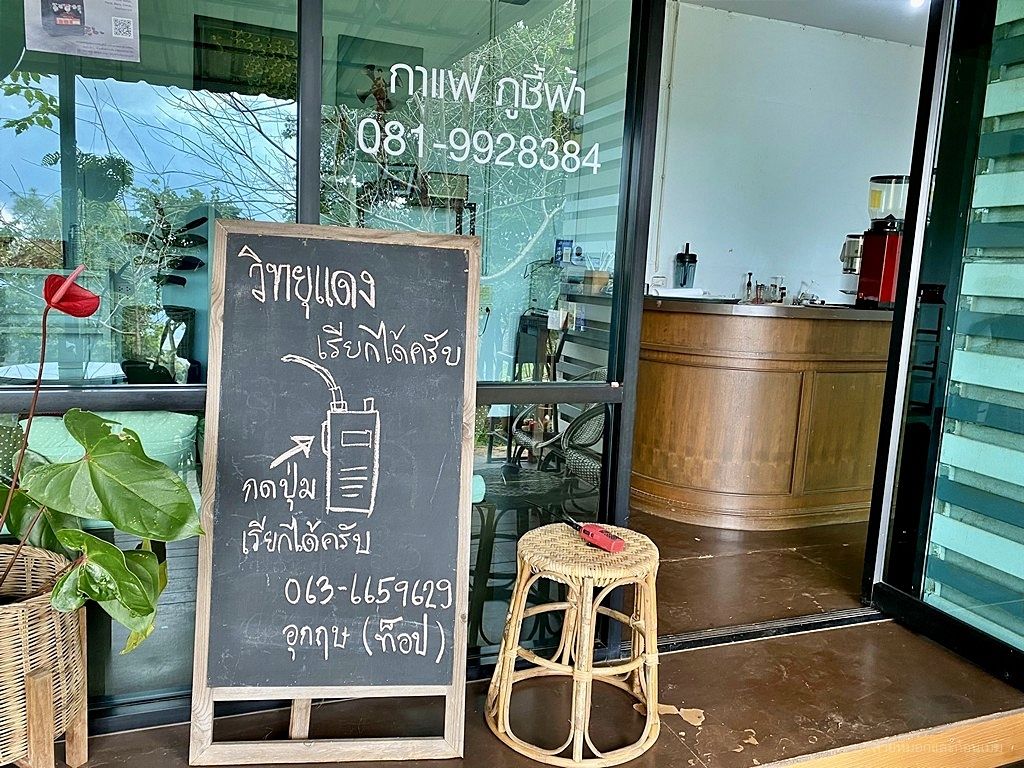 กาแฟ ภูชี้ฟ้า
081-9928384
วิทยุแดง
เรียกได้ครับ
กดปุ่ม
เรียกได้ครับ
063-6659629
อุกฤษ (ท็อป)